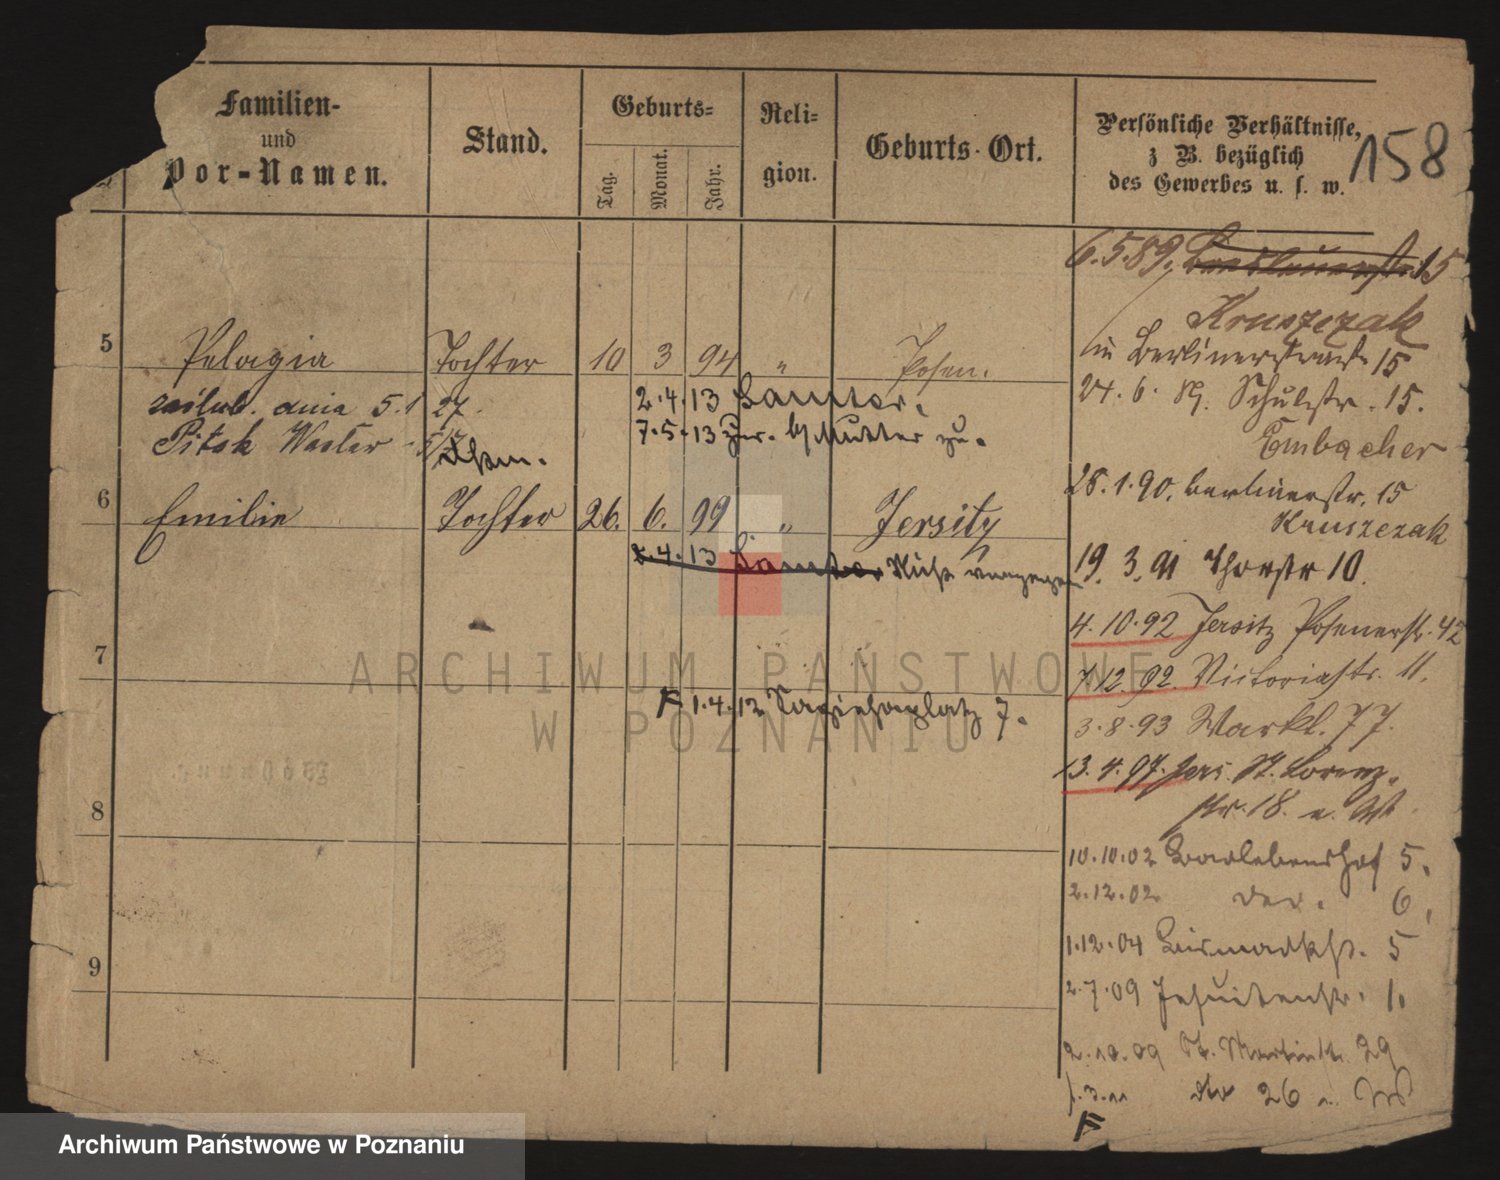 Familien-
und
Vor-Namen.
Stand.
Geburts-
Tag.
Monat.
Jahr.
Reli-
gion.
Geburts-Ort.
Persönliche Verhältnisse,
z B. bezüglich
des Gewerbes u. s. w.
158
6.5.89. 15
Kruszczak
in Berlinerstrasse 15
5 Pelagia Tochter 10 3 94 " Posen.
24.6. Schulstr. 15.
zaślub. dnia 5.1 27.
2.4.13 Samter.
Pitak Wacław
7.5.13 zur. b/ Mutter zu.
Embacher
28.1.90. Berlinerstr. 15
Kruszczak
6 Emilie Tochter 26. 6. 99 " Jersitz
4.13 Samter
19. 3. 91 Thorstr 10.
4.10.92 Jersitz Posenerstr. 42
7
7.12.92. Victoriastr. 11.
F 1.4.12 Sapiehaplatz 7.
3.8.93 77.
13.4.97. Jers. St. Lorenz-
str. 18.
8
10.10.02 5.
2.12.02 6,
1.12.04 Bismarckstr. 5
9
2.7.09 Jesuitenstr. 1.
2.10.09 St. Martinstr. 29
1.3.11 26
F
ARCHIWUM PAŃSTWOWE
W POZNANIU
Archiwum Państwowe w Poznaniu